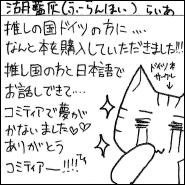 湖藍灰(ふーらんほい) らいあ
推しの国ドイツの方に…
なんと本を購入していただきました!!!
推し国の方と日本語で
お話しできて…
コミティアで夢が
かないました♡♡
ありがとう
コミティアー!!!!
ドイツ本
サークル